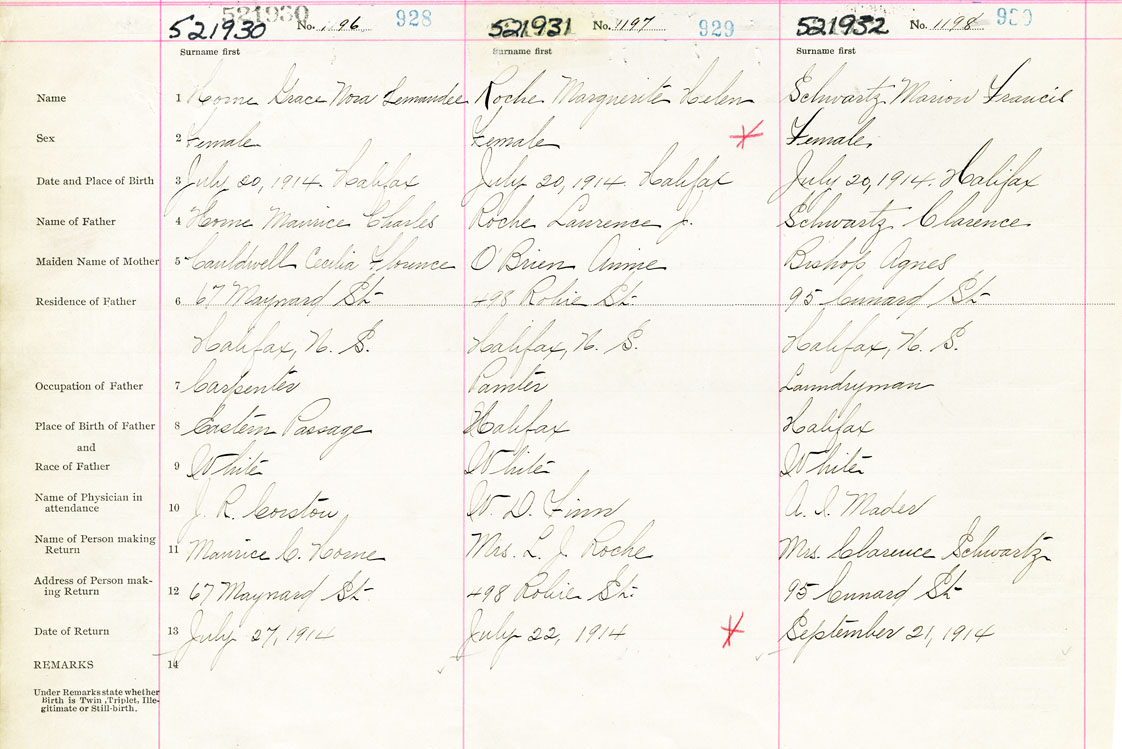 521930 No. 1196 928 521931 No. 1197 929 521932 No. 1198 930
Surname first Surname first Surname first
Name 1 Horne Grace Nora Roche Marguerite Helen Schwartz Marion Francis
Sex 2 Female Female Female
Date and Place of Birth 3 July 20, 1914. Halifax July 20, 1914. Halifax July 20, 1914. Halifax
Name of Father 4 Horne Maurice Charles Roche Laurence J. Schwartz Clarence
Maiden Name of Mother 5 Cauldwell Cecilia Florence O'Brien Annie Bishop Agnes
Residence of Father 6 67 Maynard St. 498 Robie St. 95 Cunard St.
Halifax, N. S. Halifax, N. S. Halifax, N. S.
Occupation of Father 7 Carpenter Painter Laundryman
Place of Birth of Father 8 Eastern Passage Halifax Halifax
and
Race of Father 9 White White White
Name of Physician in
attendance 10 J. R. Corston W. D. Finn A. I. Mader
Name of Person making
Return 11 Maurice C. Horne Mrs. L. J. Roche Mrs. Clarence Schwartz
Address of Person mak-
ing Return 12 67 Maynard St. 498 Robie St. 95 Cunard St.
Date of Return 13 July 27, 1914 July 22, 1914 September 21, 1914
REMARKS 14
Under Remarks state whether
Birth is Twin, Triplet, Ille-
gitimate or Still-birth.